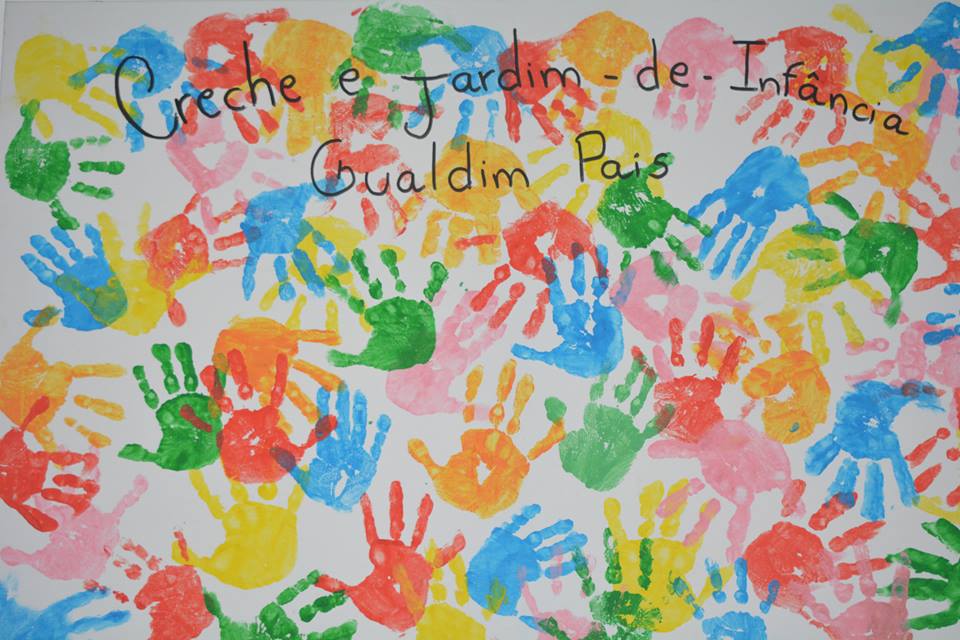 Creche e Jardim-de-Infância
Gualdim Pais